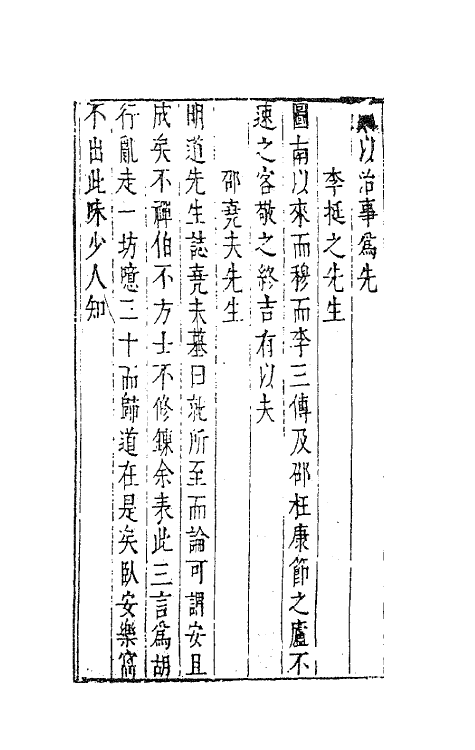 以治事爲先
李挺之先生
圖南以來而穆而李三傳及邵枉康節之廬不
速之客敬之終吉有以夫
邵堯夫先生
明道先生誌堯夫墓曰就所至而論可謂安且
成矣不禪伯不方士不修鍊余表此三言爲胡
行亂走一坊噫二十而歸道在是矣臥安樂窩
不出此味少人知